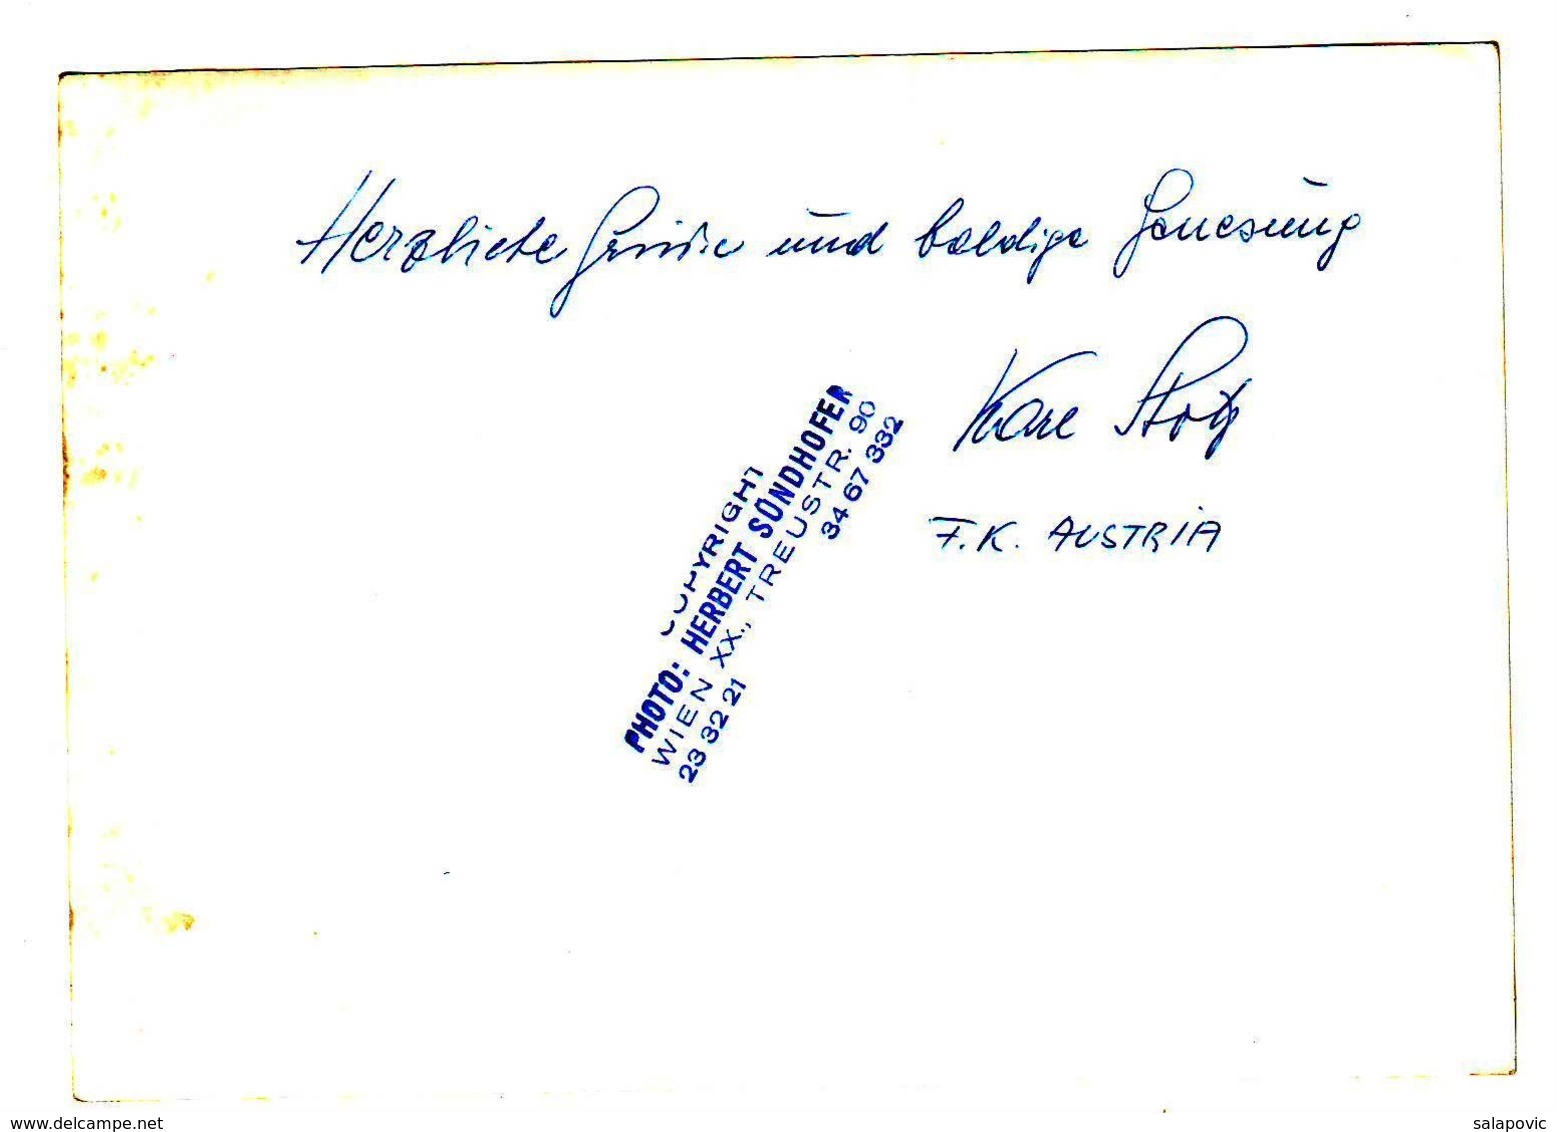 Herzliche Grüße und baldige Genesung
Karl Stotz
F.K. AUSTRIA
COPYRIGHT
PHOTO: HERBERT SÜNDHOFER
WIEN XX., TREUSTR. 90
23 32 21 34 67 332
www.delcampe.net
salapovic